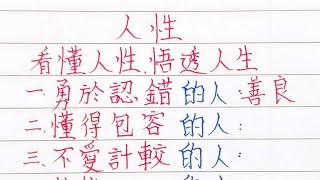 人性
看懂人性.悟透人生
一.勇於認錯的人:善良
二.懂得包容的人:
三.不愛計較的人: